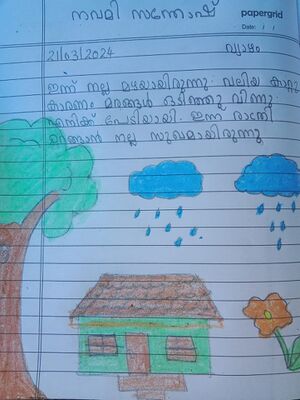 നവമി സന്തോഷ്
papergrid
Date: / /
21/03/2024 വ്യാഴം
ഇന്ന് നല്ല മഴയായിരുന്നു. വലിയ കാറ്റു
കാരണം മരങ്ങൾ ഒടിഞ്ഞു വീണു
എനിക്ക് പേടിയായി. ഇന്ന് രാത്രി
ഉറങ്ങാൻ നല്ല സുഖമായിരുന്നു